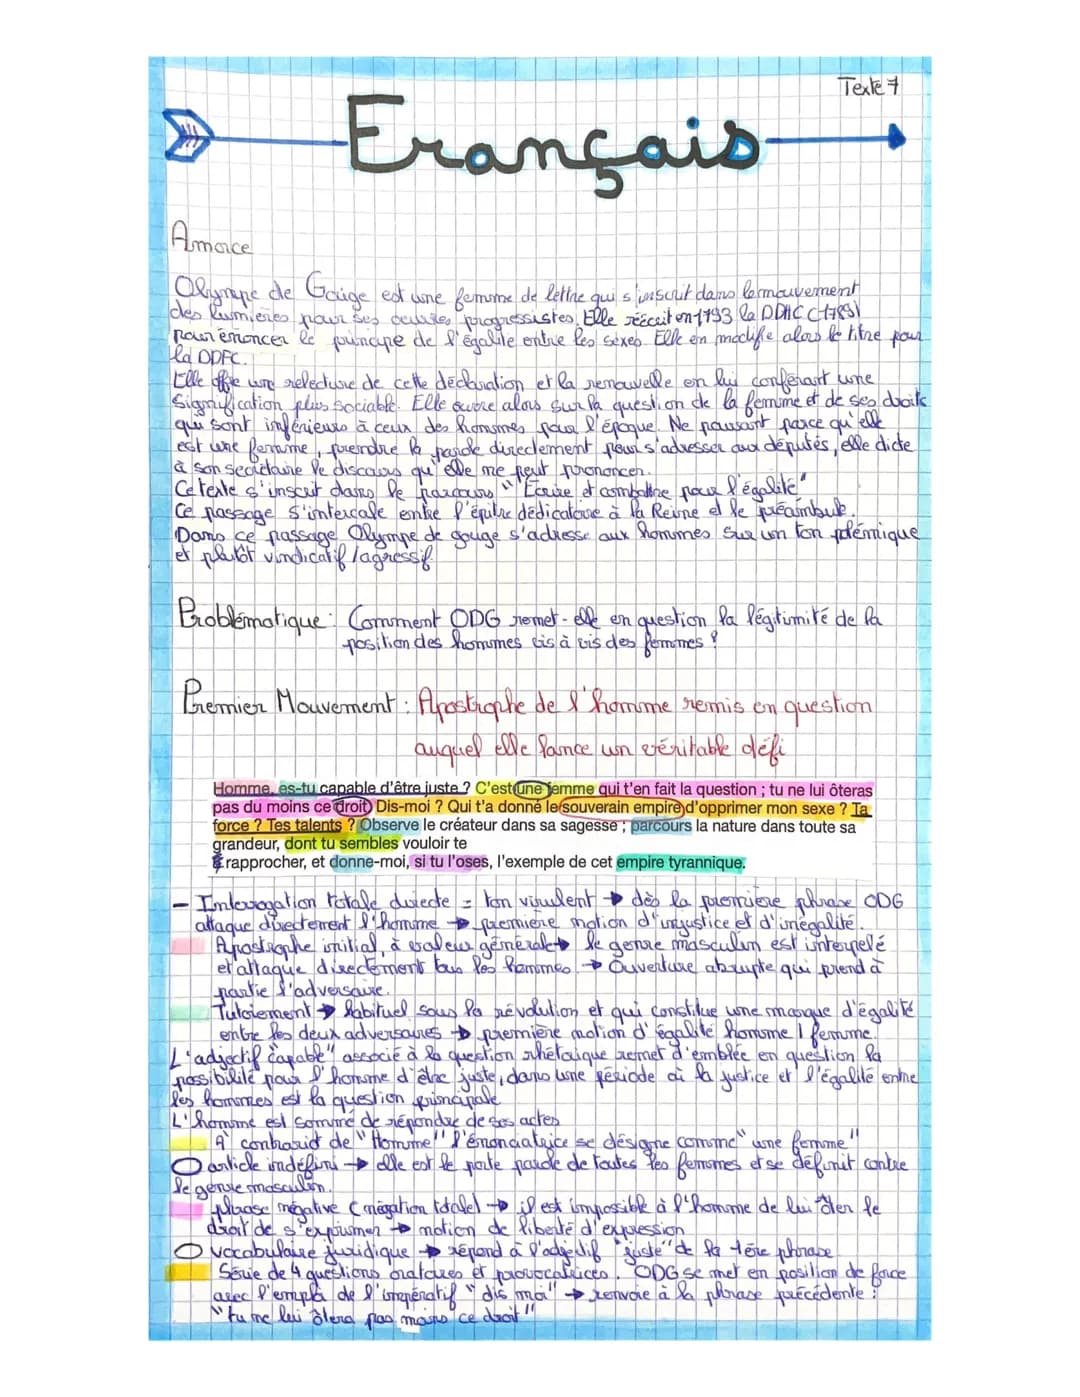 Texte 7
Français
Amorce
Olympe de Gouge est une femme de lettre qui s'inscrit dans le mouvement
des lumières pour ses œuvres progressistes. Elle réécrit en 1793 la DDHC (1789)
pour énoncer le principe de l'égalité entre les sexes. Elle en modifie alors le titre pour
la DDFC.
Elle offre une relecture de cette déclaration et la renouvelle en lui conférant une
signification plus sociable. Elle ouvre alors sur la question de la femme et de ses droits
qui sont inférieurs à ceux des hommes pour l'époque. Ne pouvant parce qu'elle
est une femme, prendre la parole directement pour s'adresser aux députés, elle dicte
à son secrétaire le discours qu'elle ne peut prononcer.
Ce texte s'inscrit dans le parcours "Écrire et combattre pour l'égalité"
Ce passage s'intercale entre l'épitre dédicatoire à la Reine et le préambule.
Dans ce passage Olympe de gouge s'adresse aux hommes sur un ton polémique
et plutôt vindicatif /agressif
Problématique : Comment ODG remet-elle en question la légitimité de la
position des hommes vis à vis des femmes ?
Premier Mouvement : Apostrophe de l'homme remis en question
auquel elle lance un véritable défi
Homme, es-tu capable d'être juste ? C'est une femme qui t'en fait la question ; tu ne lui ôteras
pas du moins ce droit Dis-moi ? Qui t'a donné le souverain empire d'opprimer mon sexe ? Ta
force ? Tes talents ? Observe le créateur dans sa sagesse ; parcours la nature dans toute sa
grandeur, dont tu sembles vouloir te
rapprocher, et donne-moi, si tu l'oses, l'exemple de cet empire tyrannique.
- Interrogation totale directe = ton virulent → dès la première phrase ODG
attaque directement l'homme → première notion d'injustice et d'inégalité.
Apostrophe initial, à valeur générale → le genre masculin est interpelé
et attaque directement tous les hommes. → Ouverture abrupte qui prend à
partie l'adversaire.
Tutoiement → habituel sous la révolution et qui constitue une marque d'égalité
entre les deux adversaires → première notion d'égalité homme / femme
L'adjectif "capable" associé à la question rhétorique remet d'emblée en question la
possibilité pour l'homme d'être juste, dans une période où la justice et l'égalité entre
les hommes est la question principale
L'homme est sommé de répondre de ses actes
A contrario de "Homme" l'énonciatrice se désigne comme "une femme"
article indéfini → elle est le porte parole de toutes les femmes et se définit contre
le genre masculin.
phrase négative (négation totale) → il est impossible à l'homme de lui ôter le
droit de s'exprimer → notion de liberté d'expression
vocabulaire juridique → répond à l'adjectif "juste" de la 1ère phrase
Série de 4 questions oratoires et provocatrices. ODG se met en position de force
avec l'emploi de l'impératif "dis moi" → renvoie à la phrase précédente :
"tu ne lui ôtera pas moins ce droit"